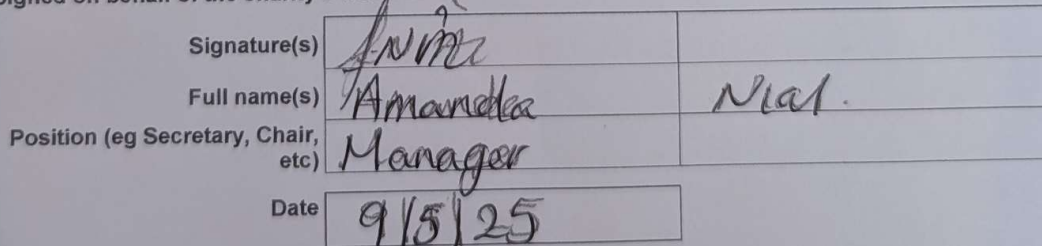 Signature(s)
Full name(s) Amandla Nial.
Position (eg Secretary, Chair,
etc) Manager
Date 9/5/25